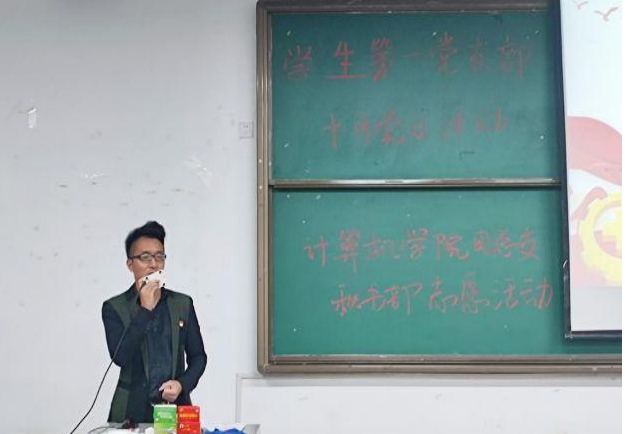 学生第一党支部
十月党日活动
计算机学院团总支
秘书部志愿活动